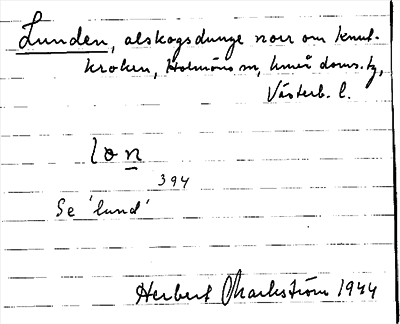 Lunden, alskogsdunge norr om Knut-
kroken, Holmöns sn, Umeå doms. tg,
Västerb. l.
lon
394
Se 'lund'
Herbert Markström 1944